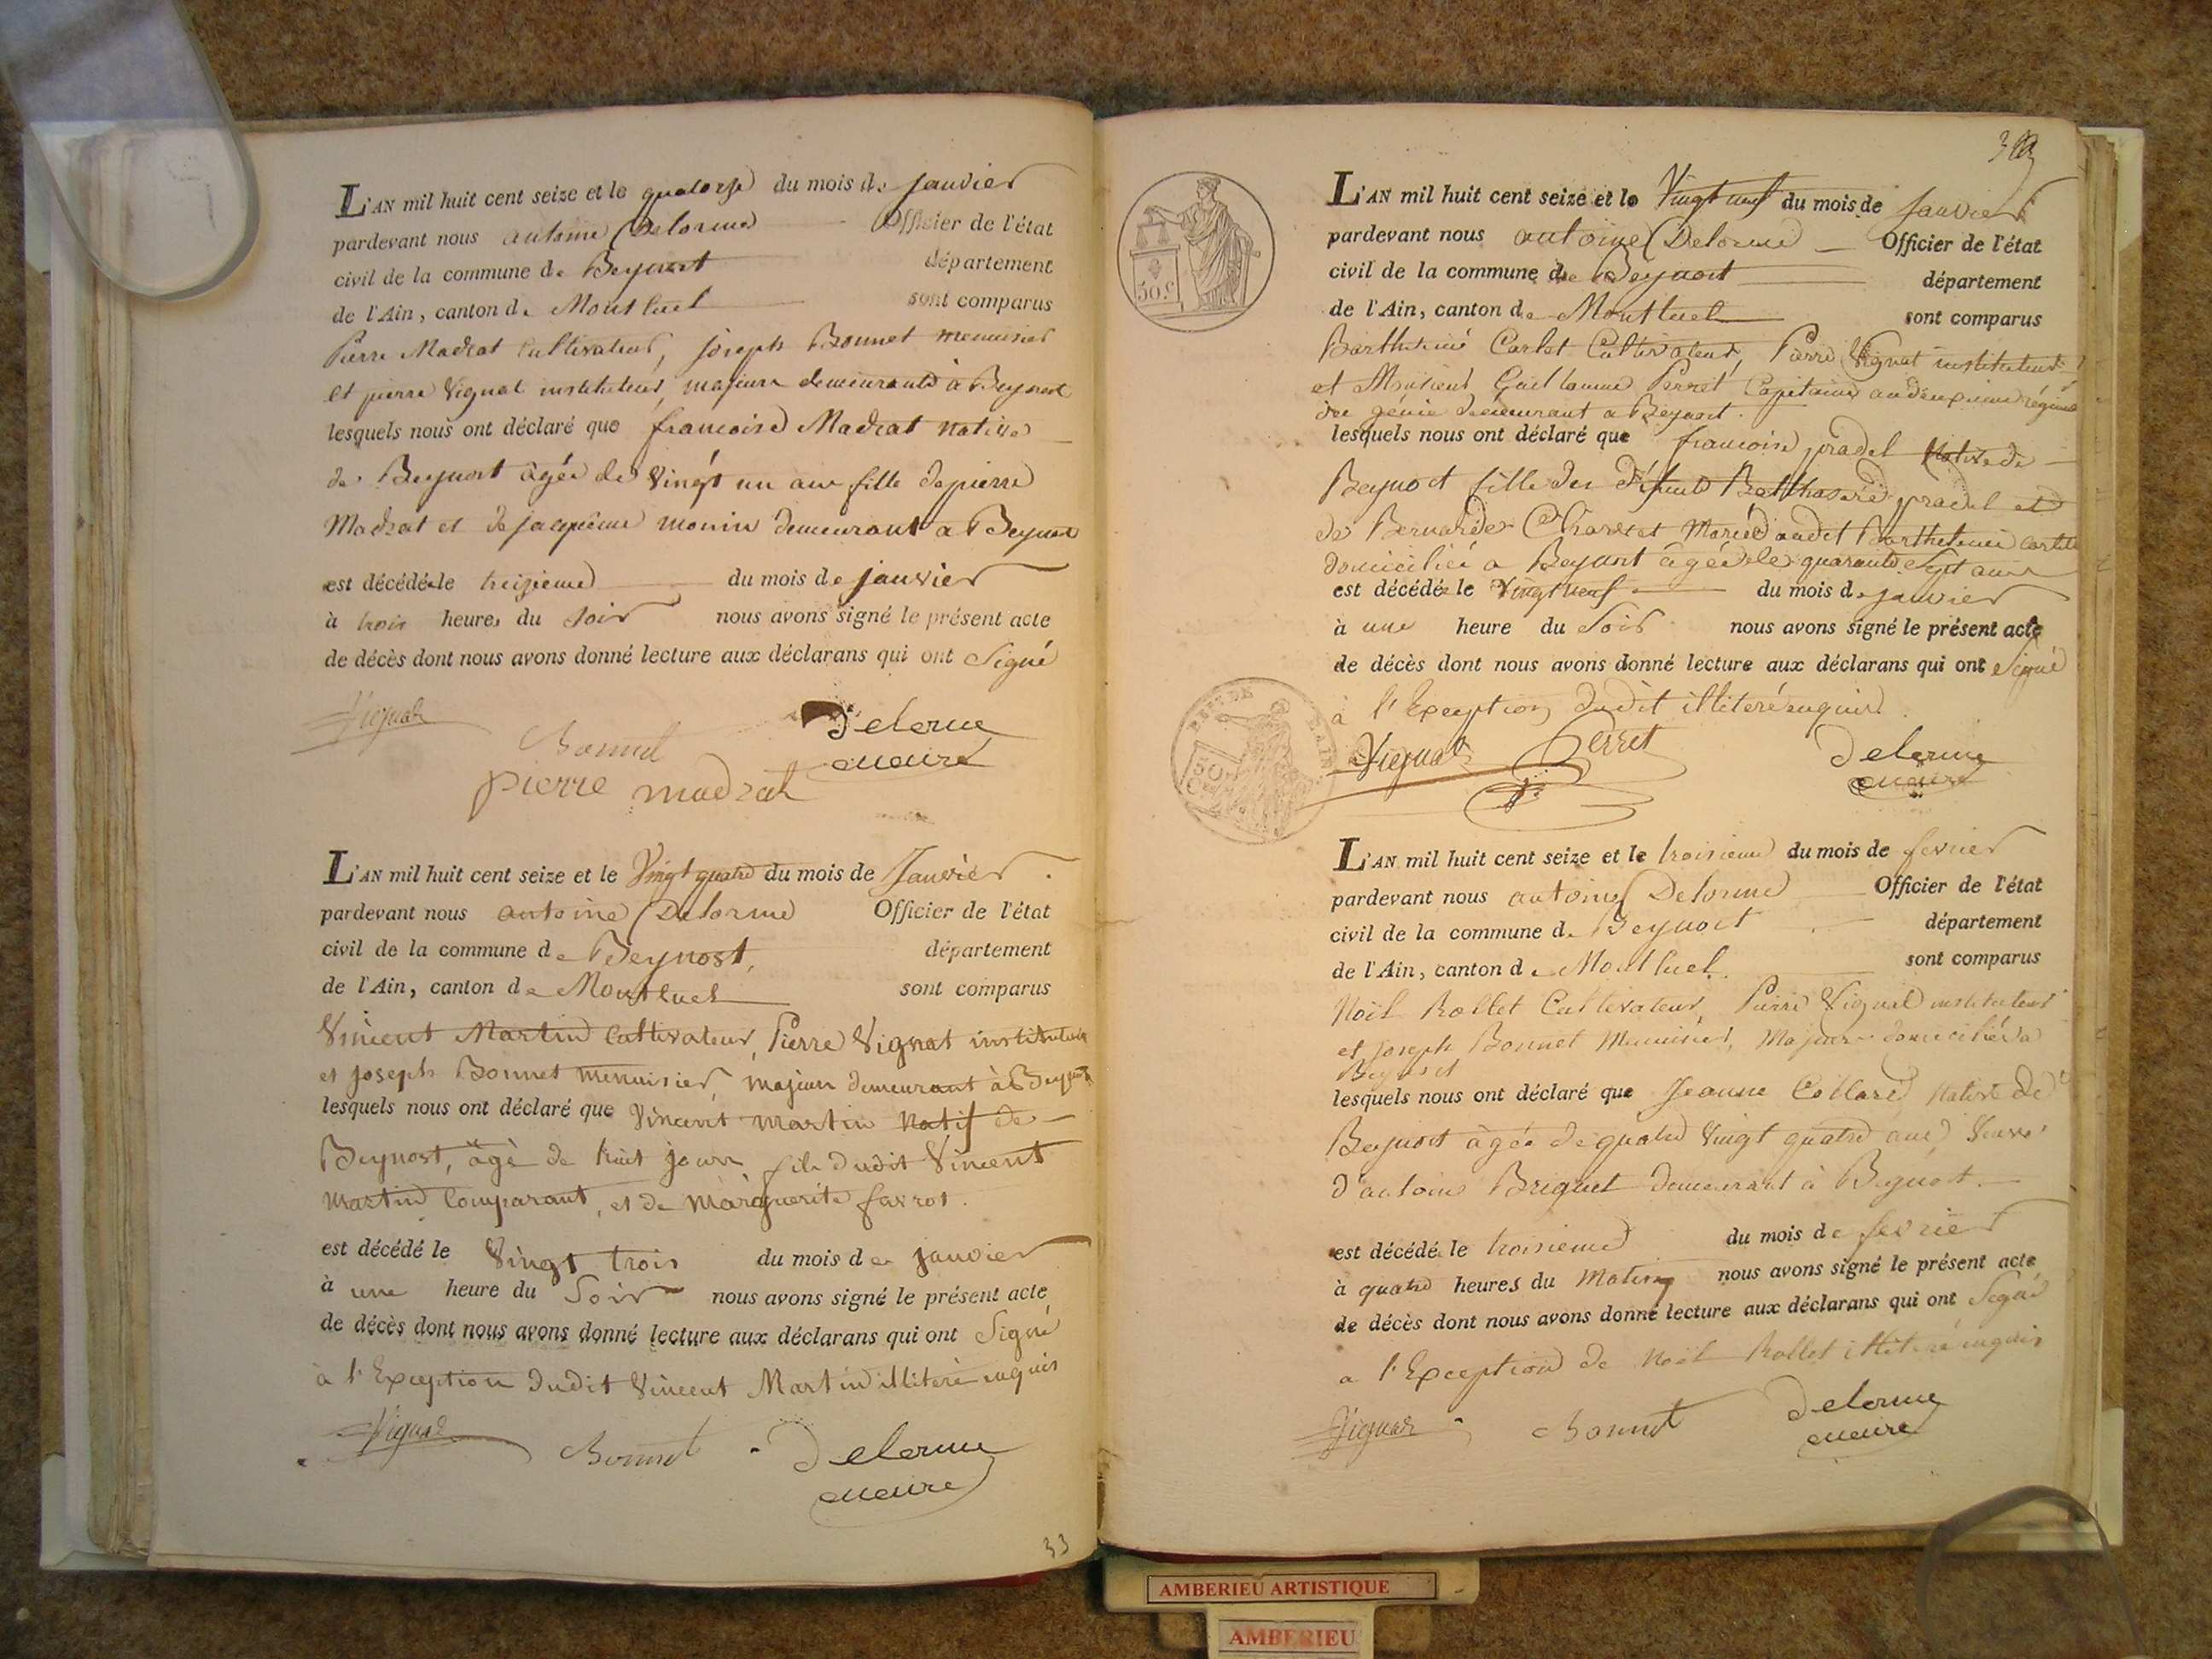 L'AN mil huit cent seize et le quatorze du mois de Janvier
pardevant nous antoine Delorme Officier de l'état
civil de la commune de Beynost département
de l'Ain, canton de Montluel sont comparus
Pierre Madrat Cultivateur, joseph Bonnet menuisier
et pierre Vignat instituteur, majeurs demeurants à Beynost
lesquels nous ont déclaré que francoise Madrat native
de Beynost âgée de vingt un ans fille de pierre
Madrat et de jacqueme monin demeurant a Beynost
est décédée le treizieme du mois de janvier
à trois heures du soir nous avons signé le présent acte
de décès dont nous avons donné lecture aux déclarans qui ont Signé
Vignat
Bonnet
Delorme
maire
pierre madrat
L'AN mil huit cent seize et le Vingt quatre du mois de Janvier
pardevant nous antoine Delorme Officier de l'état
civil de la commune de Beynost, département
de l'Ain, canton de Montluel sont comparus
Vincent Martin Cultivateur, Pierre Vignat instituteur
et joseph Bonnet menuisier, majeurs demeurant à Beynost
lesquels nous ont déclaré que Vincent martin natif de
Beynost, âgé de huit jours fils dudit Vincent
martin Comparant, et de marguerite farrot.
est décédé le Vingt trois du mois de janvier
à une heure du Soir nous avons signé le présent acte
de décès dont nous avons donné lecture aux déclarans qui ont Signé
à l'Exception dudit Vincent Martin illiteré enquis
Vignat
Bonnet
Delorme
maire
33
L'AN mil huit cent seize et le Vingt neuf du mois de Janvier
pardevant nous antoine Delorme Officier de l'état
civil de la commune de Beynost département
de l'Ain, canton de Montluel sont comparus
50.c
Barthelemi Carlet Cultivateur, Pierre Vignat instituteur
et Monsieur Guillaume Perret Capitaine au deuxieme régiment
du génie demeurant a Beynost.
lesquels nous ont déclaré que francoise pradel Native de
Beynost fille des défunts Balthasard pradel et
de Bernarde Charvet Mariée audit Barthelemi Carlet
domiciliée a Beynost âgée de quarante Sept ans
est décédée le vingt neuf du mois de janvier
à une heure du Soir nous avons signé le présent acte
de décès dont nous avons donné lecture aux déclarans qui ont Signé
à l'Exception dudit illiteré enquis
Vignat
Perret
Delorme
maire
L'AN mil huit cent seize et le troisieme du mois de fevrier
pardevant nous antoine Delorme Officier de l'état
civil de la commune de Beynost département
de l'Ain, canton de Montluel sont comparus
Noël Rollet Cultivateur, Pierre Vignat instituteur
et joseph Bonnet Menuisier, Majeurs domiciliés a
Beynost
lesquels nous ont déclaré que Jeanne Collard Native de
Beynost âgée de quatre Vingt quatre ans Veuve
d'antoine Briquet demeurant à Beynost.
est décédée le troisieme du mois de fevrier
à quatre heures du Matin nous avons signé le présent acte
de décès dont nous avons donné lecture aux déclarans qui ont Signé
a l'Exception de Noël Rollet illiteré enquis
Vignat
Bonnet
Delorme
maire
AMBERIEU ARTISTIQUE
AMBERIEU